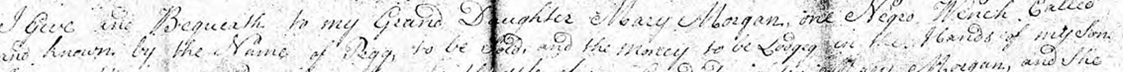 I Give and Bequeath to my Grand Daughter Mary Morgan, one Negro Wench Called
and known by the Name of Pegg, to be Sold, and the Money to be Lodged in the Hands of my Son
Mary Morgan, and She